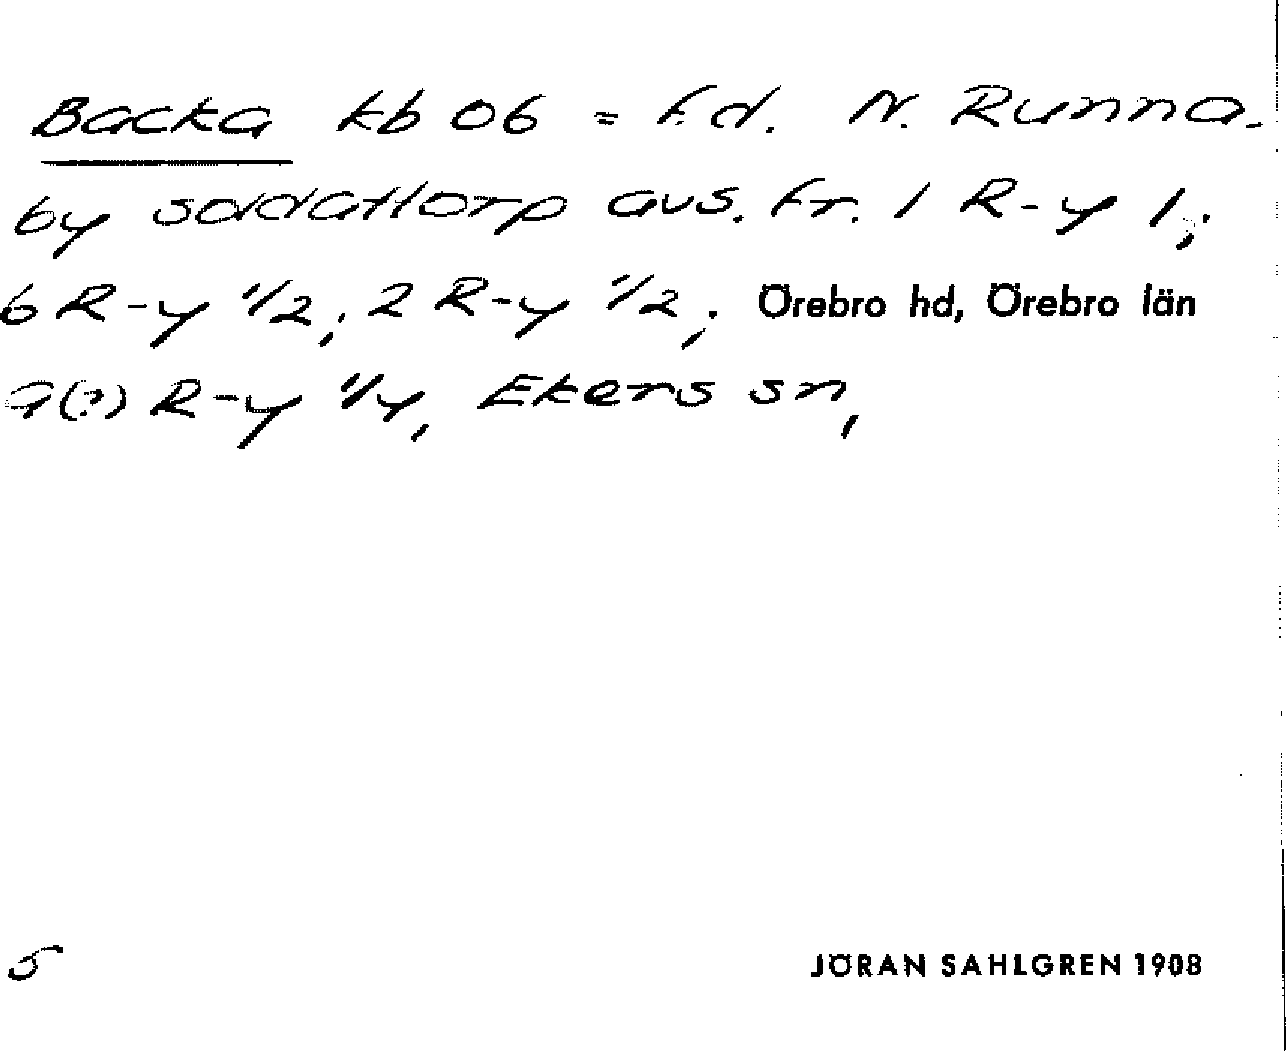 Backa kb 06 = f.d. N. Runna-
by soldattorp avs. fr. 1 R-y 1;
6 R-y 1/2; 2 R-y 1/2; Örebro hd, Örebro län
9(?) R-y 1/4, Ekers sn,
5 JÖRAN SAHLGREN 1908